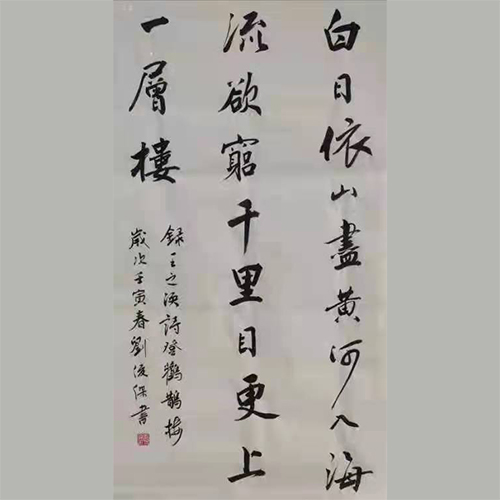 白日依山盡黄河入海
流欲窮千里目更上
一層樓
録王之渙詩登鸛鵲樓
歲次壬寅春劉俊深書